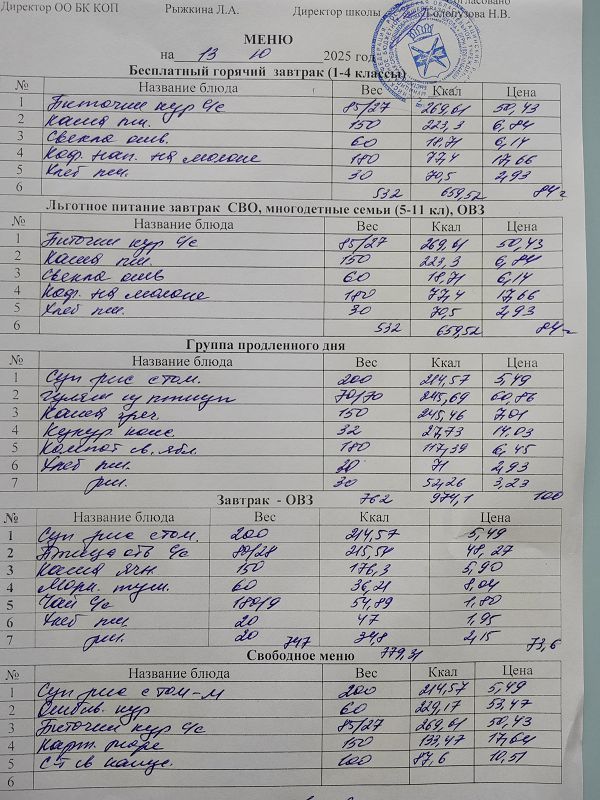 Директор ОО БК КОП Рыжкина Л.А. Директор школы Голопузова Н.В.
МЕНЮ
на 13 10 2025 год
Бесплатный горячий завтрак (1-4 классы)
№ Название блюда Вес Ккал Цена
1 Биточки кур с/с 85/27 269,61 50,43
2 Каша пш. 150 223,3 6,84
3 Свекла отв. 60 18,71 6,14
4 Коф. нап. на молоке 180 77,4 17,66
5 Хлеб пш. 30 70,5 2,93
6 532 659,52 84=
Льготное питание завтрак СВО, многодетные семьи (5-11 кл), ОВЗ
№ Название блюда Вес Ккал Цена
1 Биточки кур с/с 85/27 269,61 50,43
2 Каша пш. 150 223,3 6,84
3 Свекла отв 60 18,71 6,14
4 Коф. на молоке 180 77,4 17,66
5 Хлеб пш. 30 70,5 2,93
6 532 659,52 84=
Группа продленного дня
№ Название блюда Вес Ккал Цена
1 Суп рис с том. 200 214,57 5,49
2 Гуляш из птицы 70/70 245,69 60,86
3 Каша греч. 150 245,46 7,01
4 Кукур. конс. 32 27,73 14,03
5 Компот св. ябл. 180 117,39 6,45
6 Хлеб пш. 30 71 2,93
7 рж. 30 52,26 3,23
762 974,1 100
Завтрак - ОВЗ
№ Название блюда Вес Ккал Цена
1 Суп рис с том. 200 214,57 5,49
2 Птица отв с/с 80/28 215,54 48,27
3 Каша ячн 150 176,3 5,90
4 Морк. туш. 60 36,21 8,04
5 Чай с/с 180/9 54,89 1,80
6 Хлеб пш. 20 47 1,95
7 рж. 20 747 34,8 2,15 73,6
779,31
Свободное меню
№ Название блюда Вес Ккал Цена
1 Суп рис с том-м 200 214,57 5,49
2 Отбив. кур 60 229,17 53,47
3 Биточки кур с/с 85/27 269,61 50,43
4 Карт. пюре 150 133,47 17,64
5 С-т св капус. 100 87,6 10,51
6